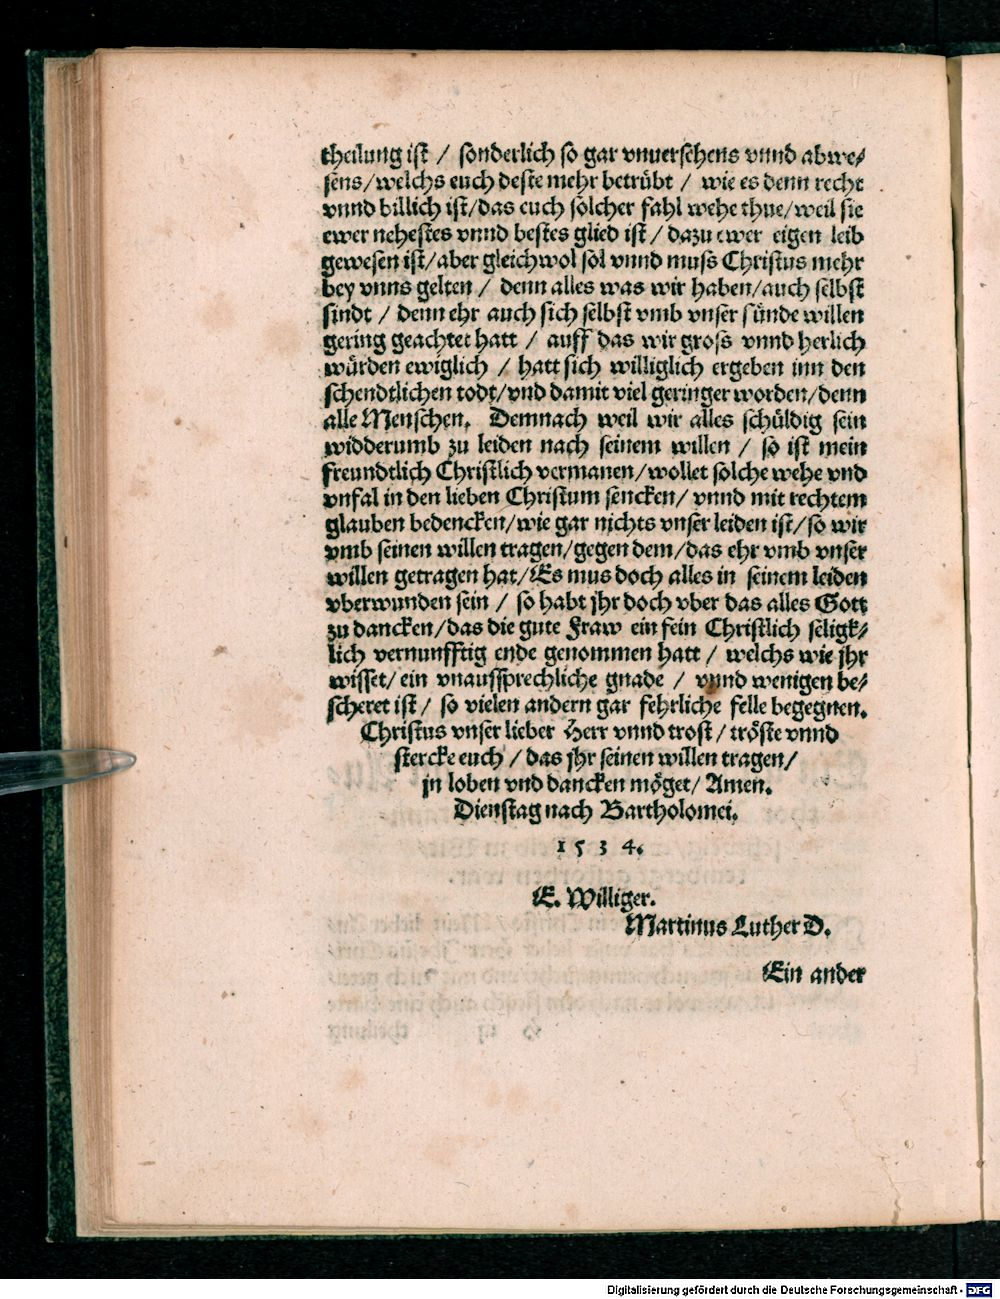 theilung ist / sonderlich so gar vnuersehens vnnd abwe-
sens/welchs euch deste mehr betrübt / wie es denn recht
vnnd billich ist/das euch solcher fahl wehe thue/weil sie
ewer nehestes vnnd bestes glied ist / dazu ewer eigen leib
gewesen ist/aber gleichwol sol vnnd muss Christus mehr
bey vnns gelten / denn alles was wir haben/auch selbst
sindt / denn ehr auch sich selbst vmb vnser sünde willen
gering geachtet hatt / auff das wir gross vnnd herlich
würden ewiglich / hatt sich williglich ergeben inn den
schendtlichen todt/vnd damit viel geringer worden/denn
alle Menschen. Demnach weil wir alles schüldig sein
widderumb zu leiden nach seinem willen / so ist mein
freundtlich Christlich vermanen/wollet solche wehe vnd
vnfal in den lieben Christum sencken/ vnnd mit rechtem
glauben bedencken/wie gar nichts vnser leiden ist/so wir
vmb seinen willen tragen/gegen dem/das ehr vmb vnser
willen getragen hat/Es mus doch alles in seinem leiden
vberwunden sein / so habt jhr doch vber das alles Gott
zu dancken/das die gute Fraw ein fein Christlich seligk-
lich vernunfftig ende genommen hatt / welchs wie jhr
wisset/ein vnaussprechliche gnade / vnnd wenigen be-
scheret ist / so vielen andern gar fehrliche felle begegnen.
Christus vnser lieber Herr vnnd trost / tröste vnnd
stercke euch / das jhr seinen willen tragen/
jn loben vnd dancken möget/ Amen.
Dienstag nach Bartholomei.
1534.
E. Williger.
Martinus Luther D.
Ein ander
Digitalisierung gefördert durch die Deutsche Forschungsgemeinschaft - DFG